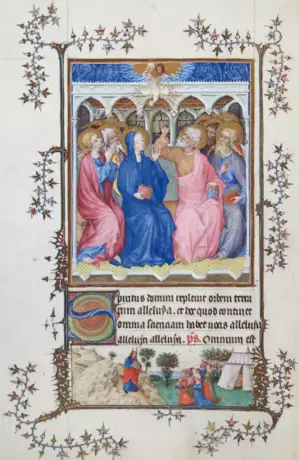 Spiritus domini replevit orbem terra
rum alleluya. et hoc quod continet
omnia scienciam habet vocis alleluya
alleluya alleluya. ps. Omnium est